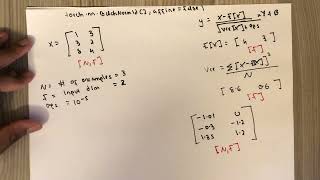 torch.nn.BatchNorm1d(), affine=False
x = [1 3
3 2
8 4]
[N,F]
N = # of examples = 3
F = input dim = 2
eps = 10^-5
y = x-E[x] / √var[x]+eps * γ + β
E[x] = [4 3]
[F]
var = Σ[x-E[x]]² / N
[8.6 0.6]
[F]
[-1.01 0
-0.3 -1.2
1.35 1.2]
[N,F]